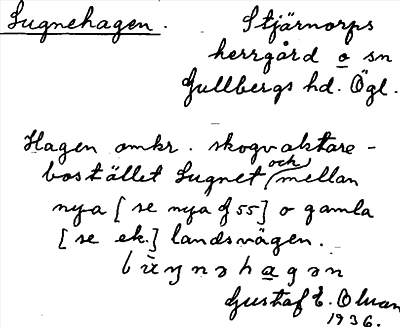 Lugnehagen.
Stjärnorps
herrgård o sn
Gullbergs hd. Ögl.
Hagen omkr. skogvaktare-
bostället Lugnet och mellan
nya [se nya g 55] o gamla
[se ek.] landsvägen.
Gustaf E. Olsson
1936.